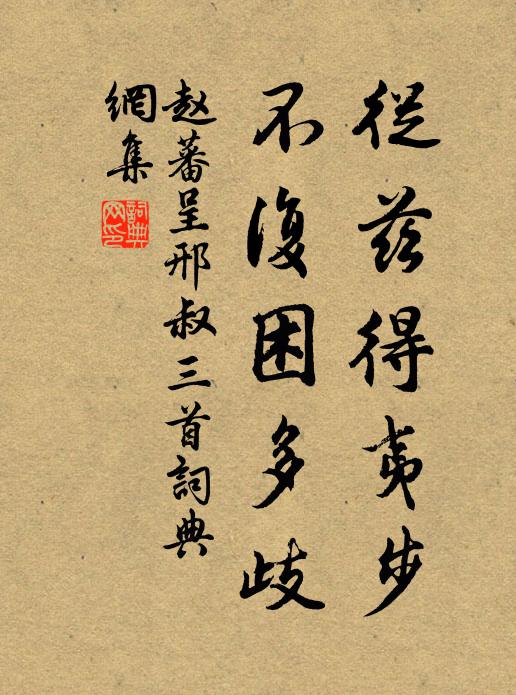 從茲得夷步
不復困多歧
赵蕃呈邢叔三首詞典
網集
詞典
网印